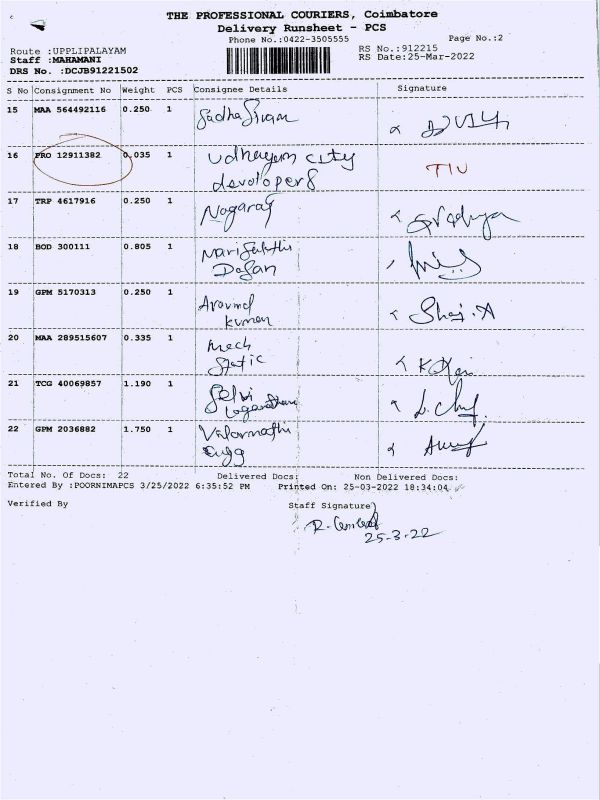 THE PROFESSIONAL COURIERS, Coimbatore
Delivery Runsheet - PCS
Phone No.:0422-3505555
Page No.:2
Route :UPPLIPALAYAM
RS No.:912215
Staff :MAHAMANI
RS Date:25-Mar-2022
DRS No. :DCJB91221502
S No Consignment No Weight PCS Consignee Details Signature
15 MAA 564492116 0.250 1 Sadha Sivam
16 PRO 12911382 0.035 1 Udhayam city
developers
17 TRP 4617916 0.250 1 Nagaraj
18 BOD 300111 0.805 1
Dasan
19 GPM 5170313 0.250 1 Aravind
kumar Shaj.A
20 MAA 289515607 0.335 1 Mech
Static
21 TCG 40069857 1.190 1 Selvi
22 GPM 2036882 1.750 1 Valarmathi
Total No. Of Docs: 22 Delivered Docs: Non Delivered Docs:
Entered By :POORNIMAPCS 3/25/2022 6:35:52 PM Printed On: 25-03-2022 18:34:04
Verified By Staff Signature
25-3-22